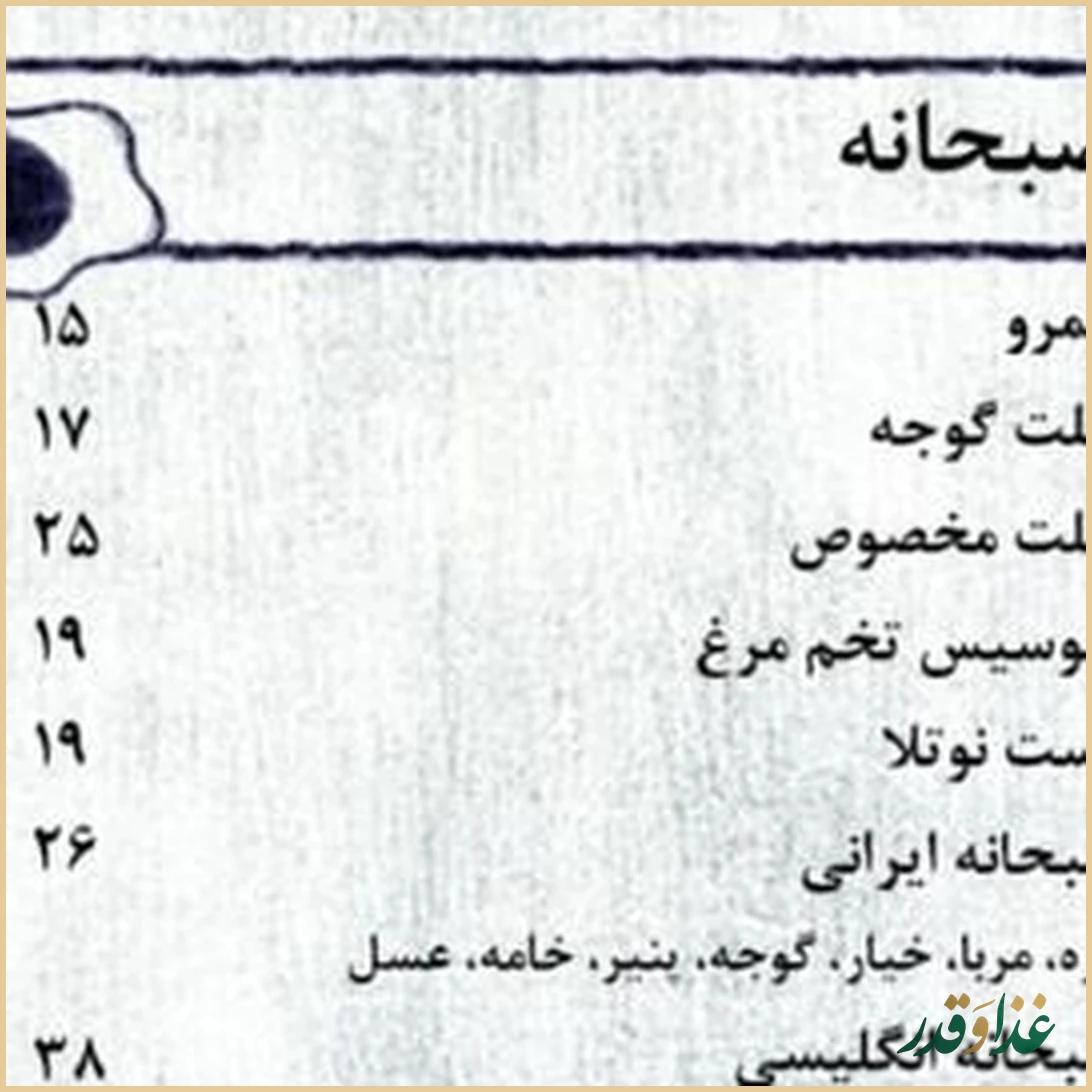 صبحانه
مرو ۱۵
لت گوجه ۱۷
لت مخصوص ۲۵
وسیس تخم مرغ ۱۹
ست نوتلا ۱۹
بحانه ایرانی ۲۶
ه، مربا، خیار، گوجه، پنیر، خامه، عسل
بحانه انگلیسی ۳۸
غذا وَ قدر